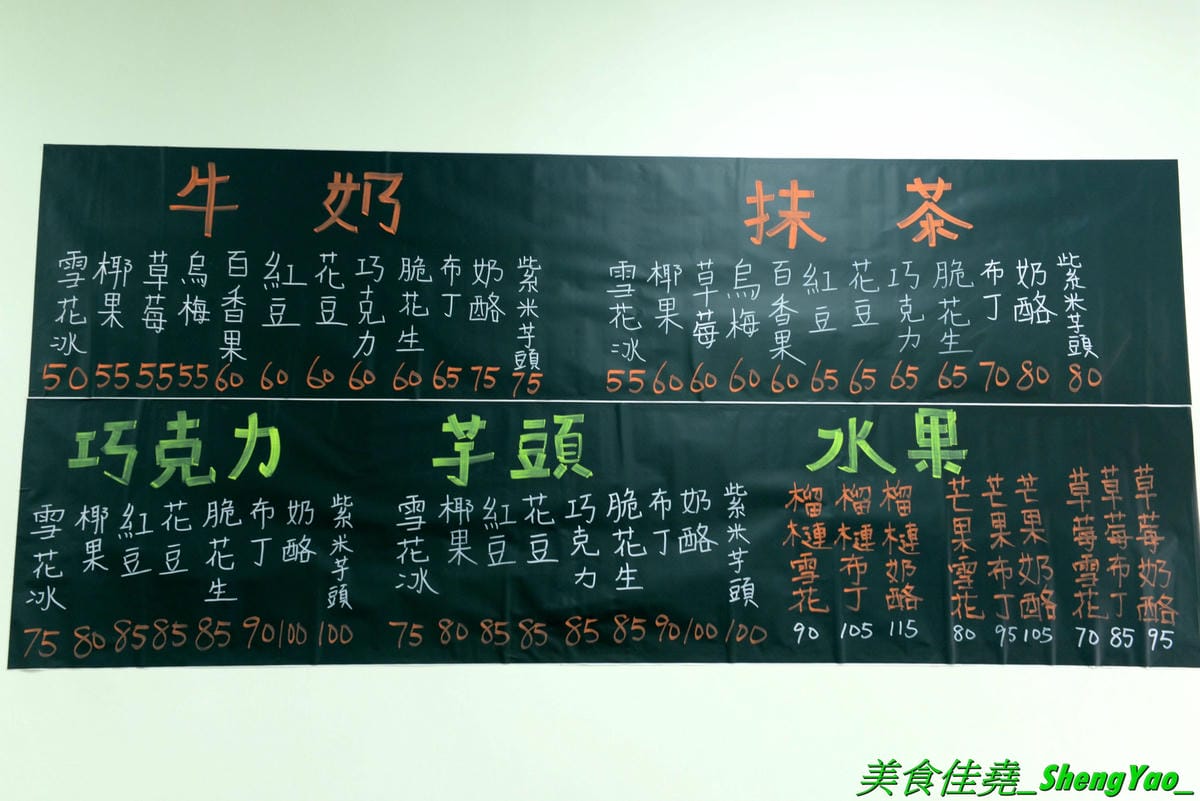 牛奶
雪花冰 50
椰果 55
草莓 55
烏梅 55
百香果 60
紅豆 60
花豆 60
巧克力 60
脆花生 60
布丁 65
奶酪 75
紫米芋頭 75
抹茶
雪花冰 55
椰果 60
草莓 60
烏梅 60
百香果 60
紅豆 65
花豆 65
巧克力 65
脆花生 65
布丁 70
奶酪 80
紫米芋頭 80
巧克力
雪花冰 75
椰果 80
紅豆 85
花豆 85
脆花生 85
布丁 90
奶酪 100
紫米芋頭 100
芋頭
雪花冰 75
椰果 80
紅豆 85
花豆 85
巧克力 85
脆花生 85
布丁 90
奶酪 100
紫米芋頭 100
水果
榴槤雪花 90
榴槤布丁 105
榴槤奶酪 115
芒果雪花 80
芒果布丁 95
芒果奶酪 105
草莓雪花 70
草莓布丁 85
草莓奶酪 95
美食佳堯_ShengYao_